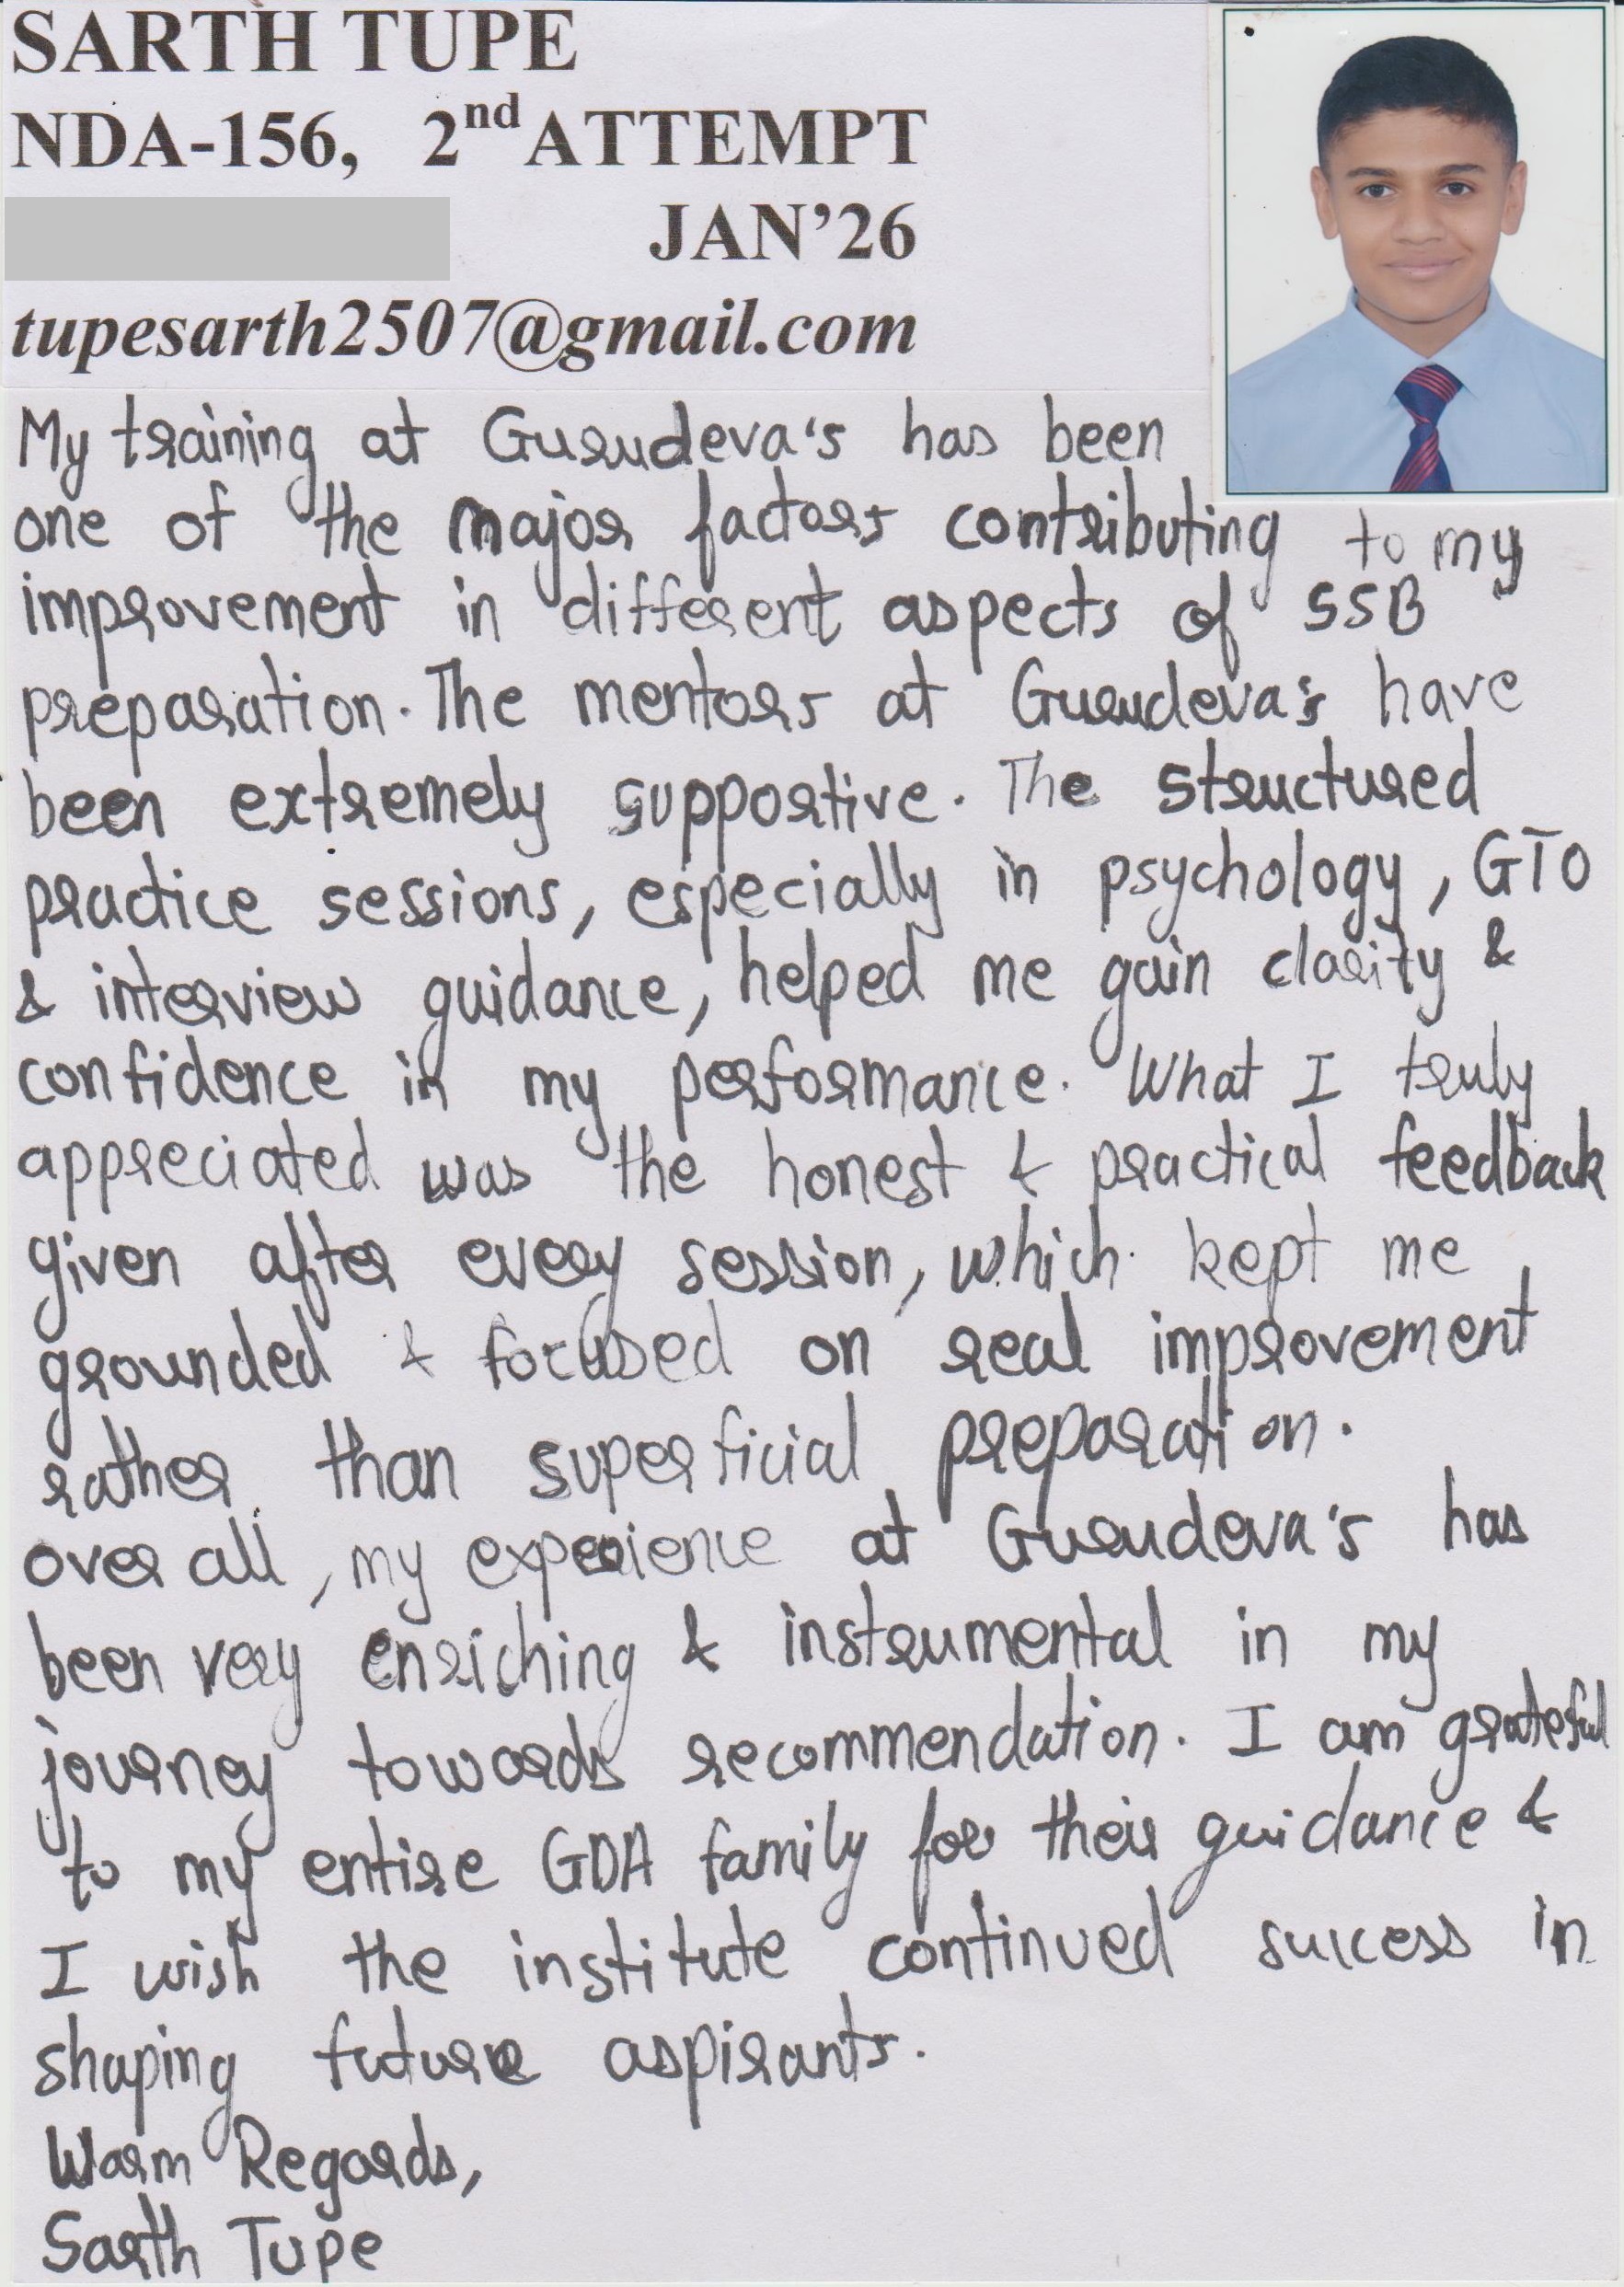 SARTH TUPE
NDA-156, 2nd ATTEMPT
JAN'26
tupesarth2507@gmail.com
My training at Gurudeva's has been
one of the major factors contributing to my
improvement in different aspects of SSB
preparation. The mentors at Gurudeva's have
been extremely supportive. The structured
practice sessions, especially in psychology, GTO
& interview guidance, helped me gain clarity &
confidence in my performance. What I truly
appreciated was the honest & practical feedback
given after every session, which kept me
grounded & focused on real improvement
rather than superficial preparation.
over all, my experience at Gurudeva's has
been very enriching & instrumental in my
journey towards recommendation. I am grateful
to my entire GDA family for their guidance &
I wish the institute continued success in
shaping future aspirants.
Warm Regards,
Sarth Tupe